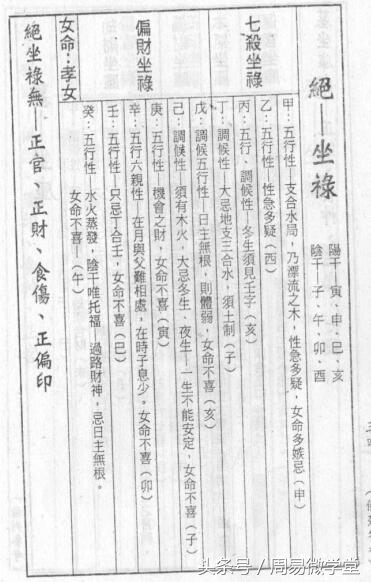 絕—坐祿
陽干 寅、申、巳、亥
陰干 子、午、卯、酉
甲：五行性—支合水局，乃漂流之木，性急多疑，女命多嫉忌（申）
七殺坐祿
乙：五行性—性急多疑（酉）
丙：五行、調候性—冬生須見壬字（亥）
丁：調候性—大忌地支三合水，須土制（子）
戊：調候五行性—日主無根，則體弱，女命不喜（亥）
偏財坐祿
己：調候性—須有木火，大忌冬生、夜生—一生不能安定，女命不喜（子）
庚：五行性—機會之財，女命不喜（寅）
辛：五行六親性—在月與父難相處，在時子息少。女命不喜（卯）
壬：五行性—只忌丁合壬，女命不喜（巳）
女命：孝女
癸：五行性—水火蒸發，陰干唯托福—過路財神，忌日主無根。
女命不喜—（午）
絕坐祿無—正官、正財、食傷、正偏印
头条号/周易微学堂